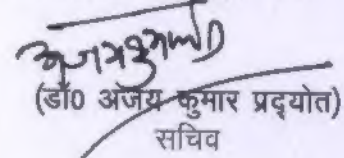 (डॉ0 अजय कुमार प्रद्योत)
सचिव